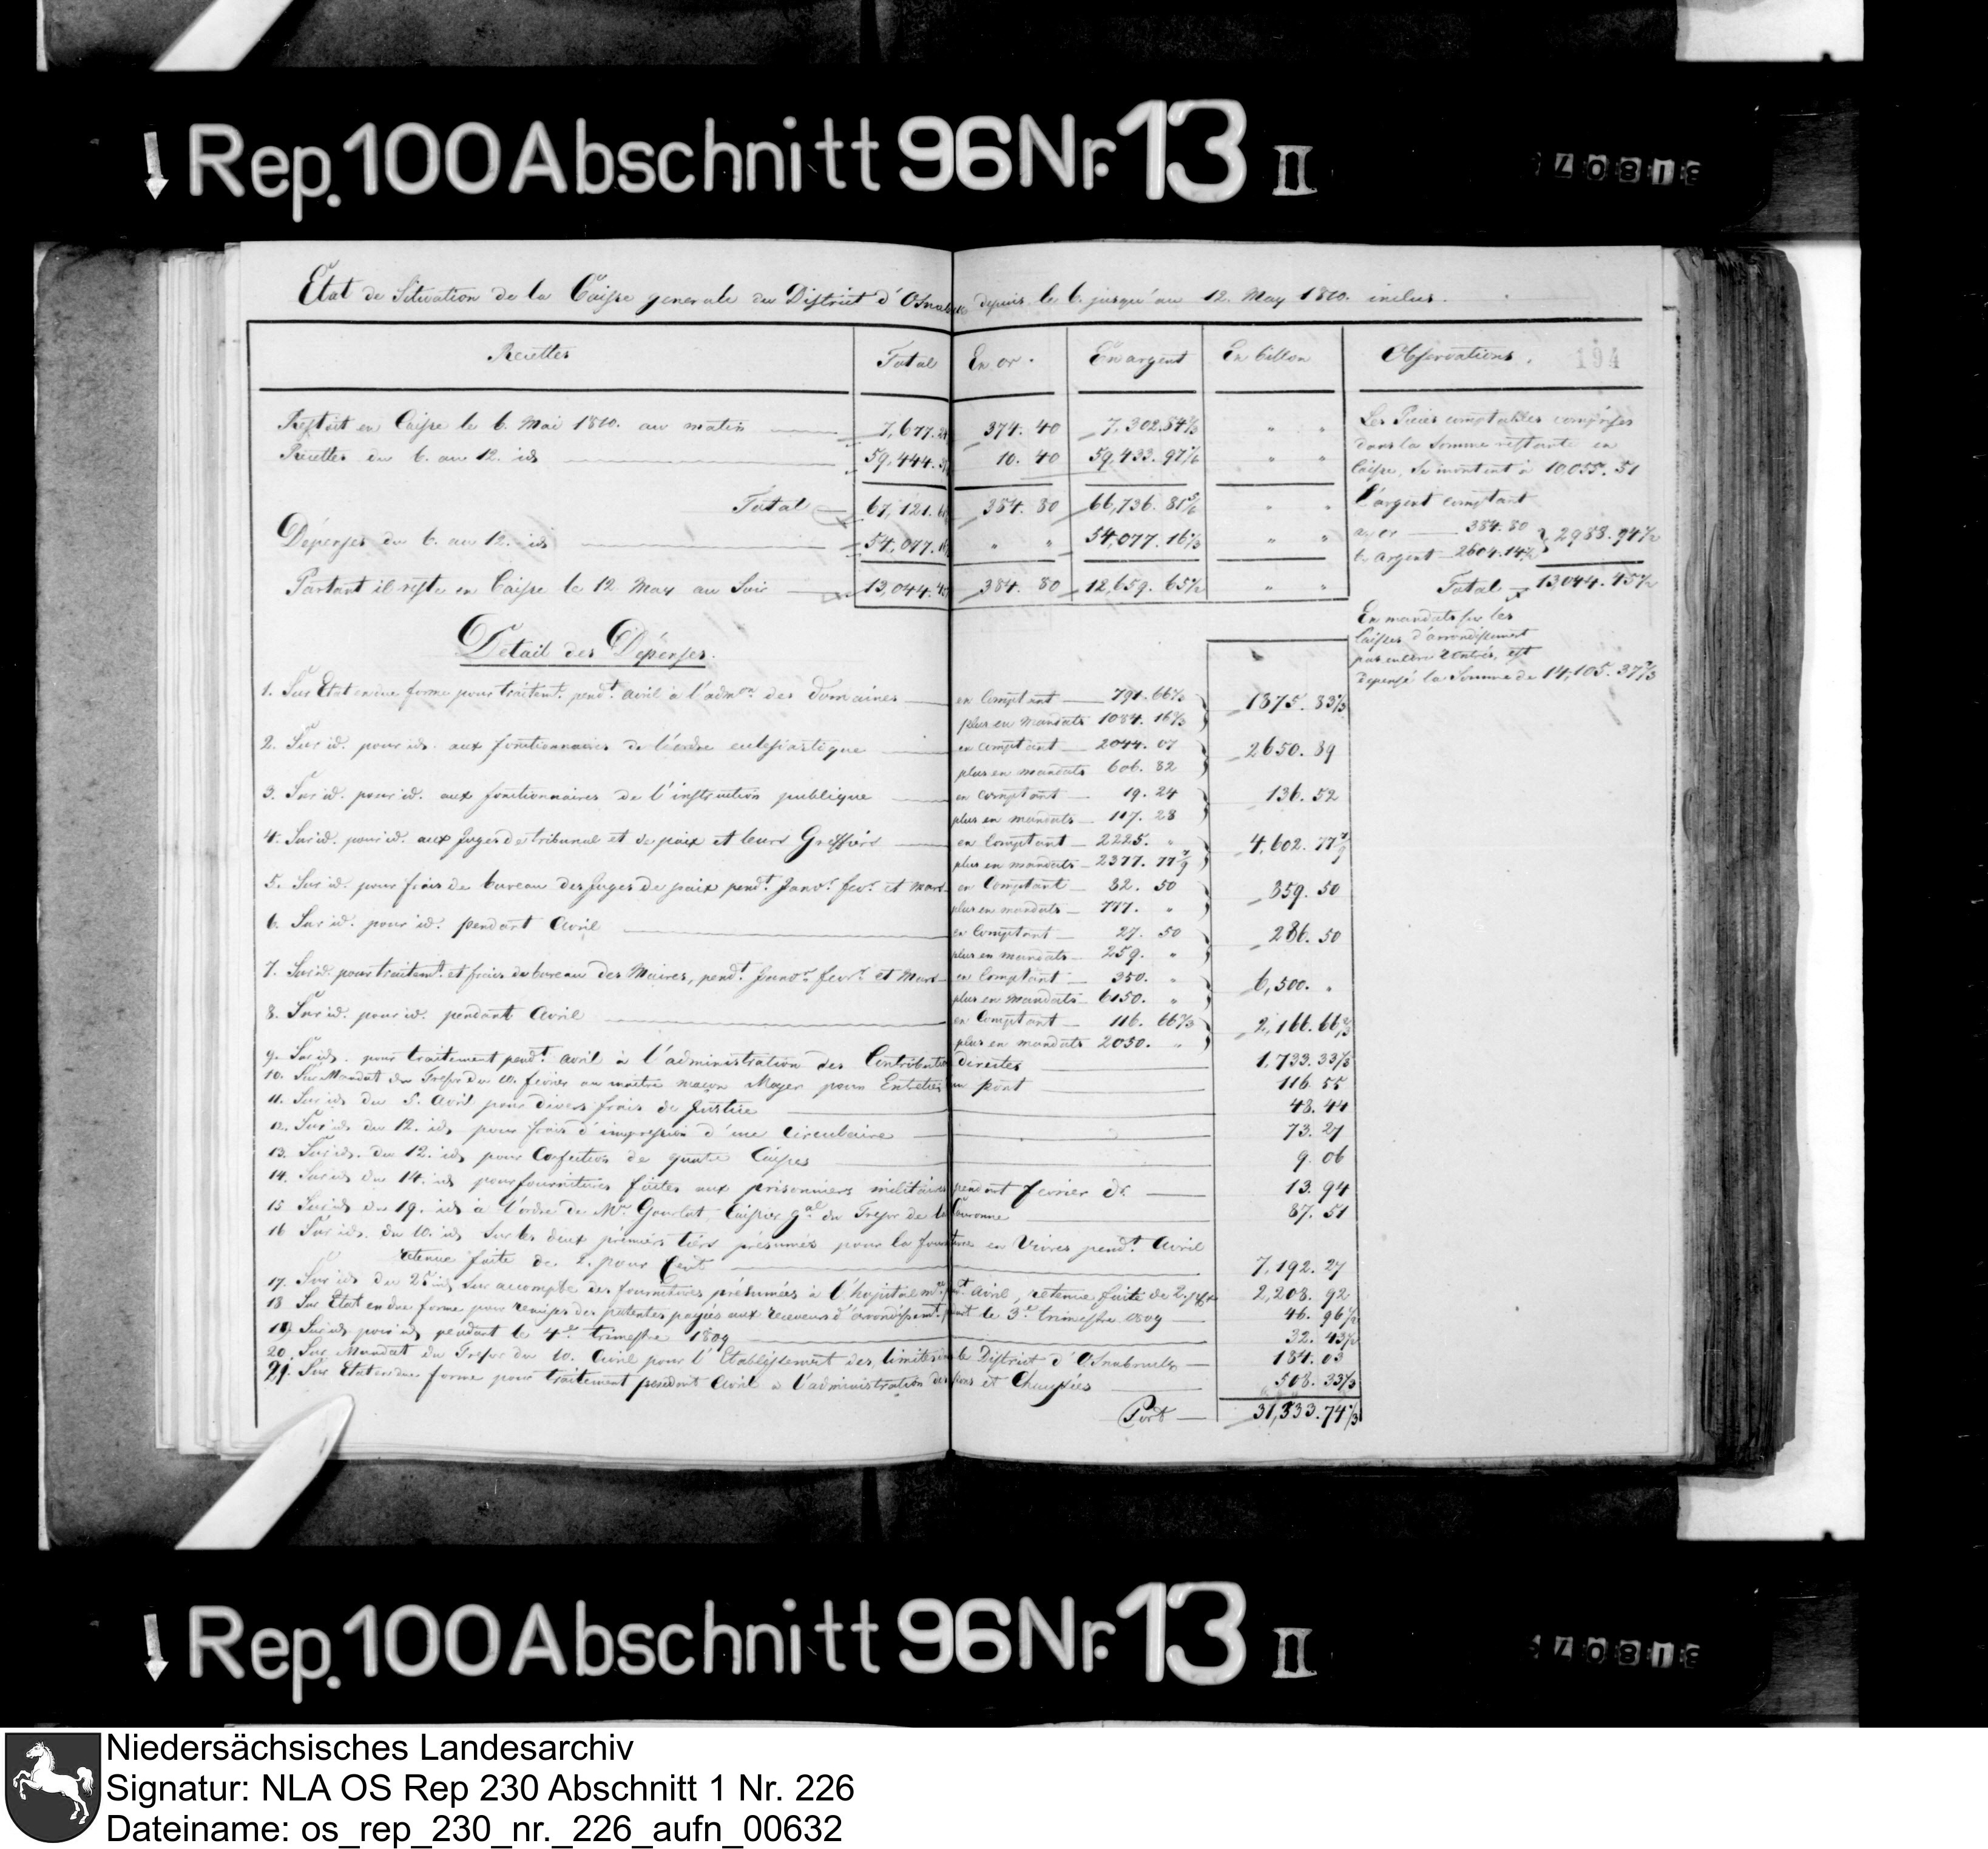 Rep. 100 Abschnitt 96 Nr. 13 II
Etat de Situation de la Caisse generale du District d'Osnabruck depuis le 6. jusqu'au 12. May 1810. inclus.
Recettes Total En or. En argent En billon Observations. 194
Restoit en Caisse le 6. Mai 1810. au matin 7,677. 374. 40 7,302.84⅔ " "
Recettes du 6. au 12. id 59,444. 10. 40 59,433. 97 " "
Total 67,121. 384. 80 66,736. 81 " "
Dépenses du 6. au 12. id 54,077. " " 54,077. 16⅓ " "
Partant il reste en Caisse le 12. May au Soir 13,044. 384. 80 12,659. 65½ " "
Les Pieces comptables comprises
dans la Somme restante en
Caisse, se montent à 10,055. 51
L'argent comptant
a, or 384. 80
b. Argent 2604. 14½ } 2988. 94½
Total 13044. 45½
En mandats sur les
Caisses d'arrondissement
pas encore rentrés, est
depensé la Somme de 14,105. 37⅔
Detail des Dépenses.
1. Sur Etat en due forme pour traitemt. pendt. avril à l'admon. des Domaines en Comptant 791. 66⅔
plus en Mandats 1084. 16⅔ } 1875. 83⅓
2. Sur id. pour id. aux fonctionnaires de l'ordre eclesiastique en comptant 2044. 07
plus en mandats 606. 82 } 2650. 89
3. Sur id. pour id. aux fonctionnaires de l'instruction publique en comptant 19. 24
plus en mandats 117. 28 } 136. 52
4. Sur id. pour id. aux Juges de tribunal et de paix et leurs Greffiers en Comptant 2225. "
plus en mandats 2377. 77 7/9 } 4,602. 77 7/9
5. Sur id. pour frais de bureau des Juges de paix pendt. Janvr. fevr. et Mars en Comptant 82. 50
plus en mandats 777. " } 859. 50
6. Sur id. pour id. pendant Avril en Comptant 27. 50
plus en mandats 259. " } 286. 50
7. Sur id. pour traitemt. et frais de bureau des Maires, pendt. Janvr. fevr. et Mars en Comptant 350. "
plus en mandats 6150. " } 6,500. "
8. Sur id. pour id. pendant Avril en Comptant 116. 66⅔
plus en mandats 2050. " } 2,166. 66⅔
9. Sur id. pour traitement pendt. avril à l'administration des Contributions directes 1,733. 33⅓
10. Sur Mandat du Tresor du 10. fevrier au maitre maçon Meyer pour Entretien un pont 116. 55
11. Sur id. du 5. Avril pour divers frais de Justice 48. 44
12. Sur id. du 12. id. pour frais d'impression d'une circulaire 73. 27
13. Sur id. du 12. id. pour Confection de quatre Caisses 9. 06
14. Sur id. du 14. id. pour fournitures faites aux prisonniers militaires pendant fevrier dr. 13. 94
15 Sur id. du 19. id. à l'ordre de Mr. Caissier gal. du Tresor de la Couronne 87. 51
16 Sur id. du 10. id. Sur les deux premiers tiers présumés pour la fourniture en Vivres pendt. Avril
retenue faite de 2. pour Cent 7,192. 27
17. Sur id. du 25 id. Sur accompte des fournitures présumées à l'hopital mre. pdt. Avril, retenue faite de 2. 2,208. 92
18 Sur Etat en due forme pour remises des patentes payées aux receveurs d'arrondissemt. pendt. le 3e. trimestre 1809 46. 96½
19 Sur id. pour id. pendant le 4e. trimestre 1809 32. 43½
20. Sur Mandat du Tresor du 10. Avril pour l'Etablissement des limites du le District d'Osnabruck 184. 03
21. Sur Etat en due forme pour traitement pendant Avril à l'administration des pons et Chaussées 508. 33⅓
Port 31,333. 74⅓
Rep. 100 Abschnitt 96 Nr. 13 II
Niedersächsisches Landesarchiv
Signatur: NLA OS Rep 230 Abschnitt 1 Nr. 226
Dateiname: os_rep_230_nr._226_aufn_00632